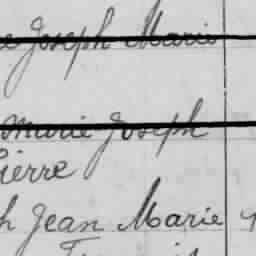 e Joseph Marie
Marie Joseph
Pierre
h Jean Marie